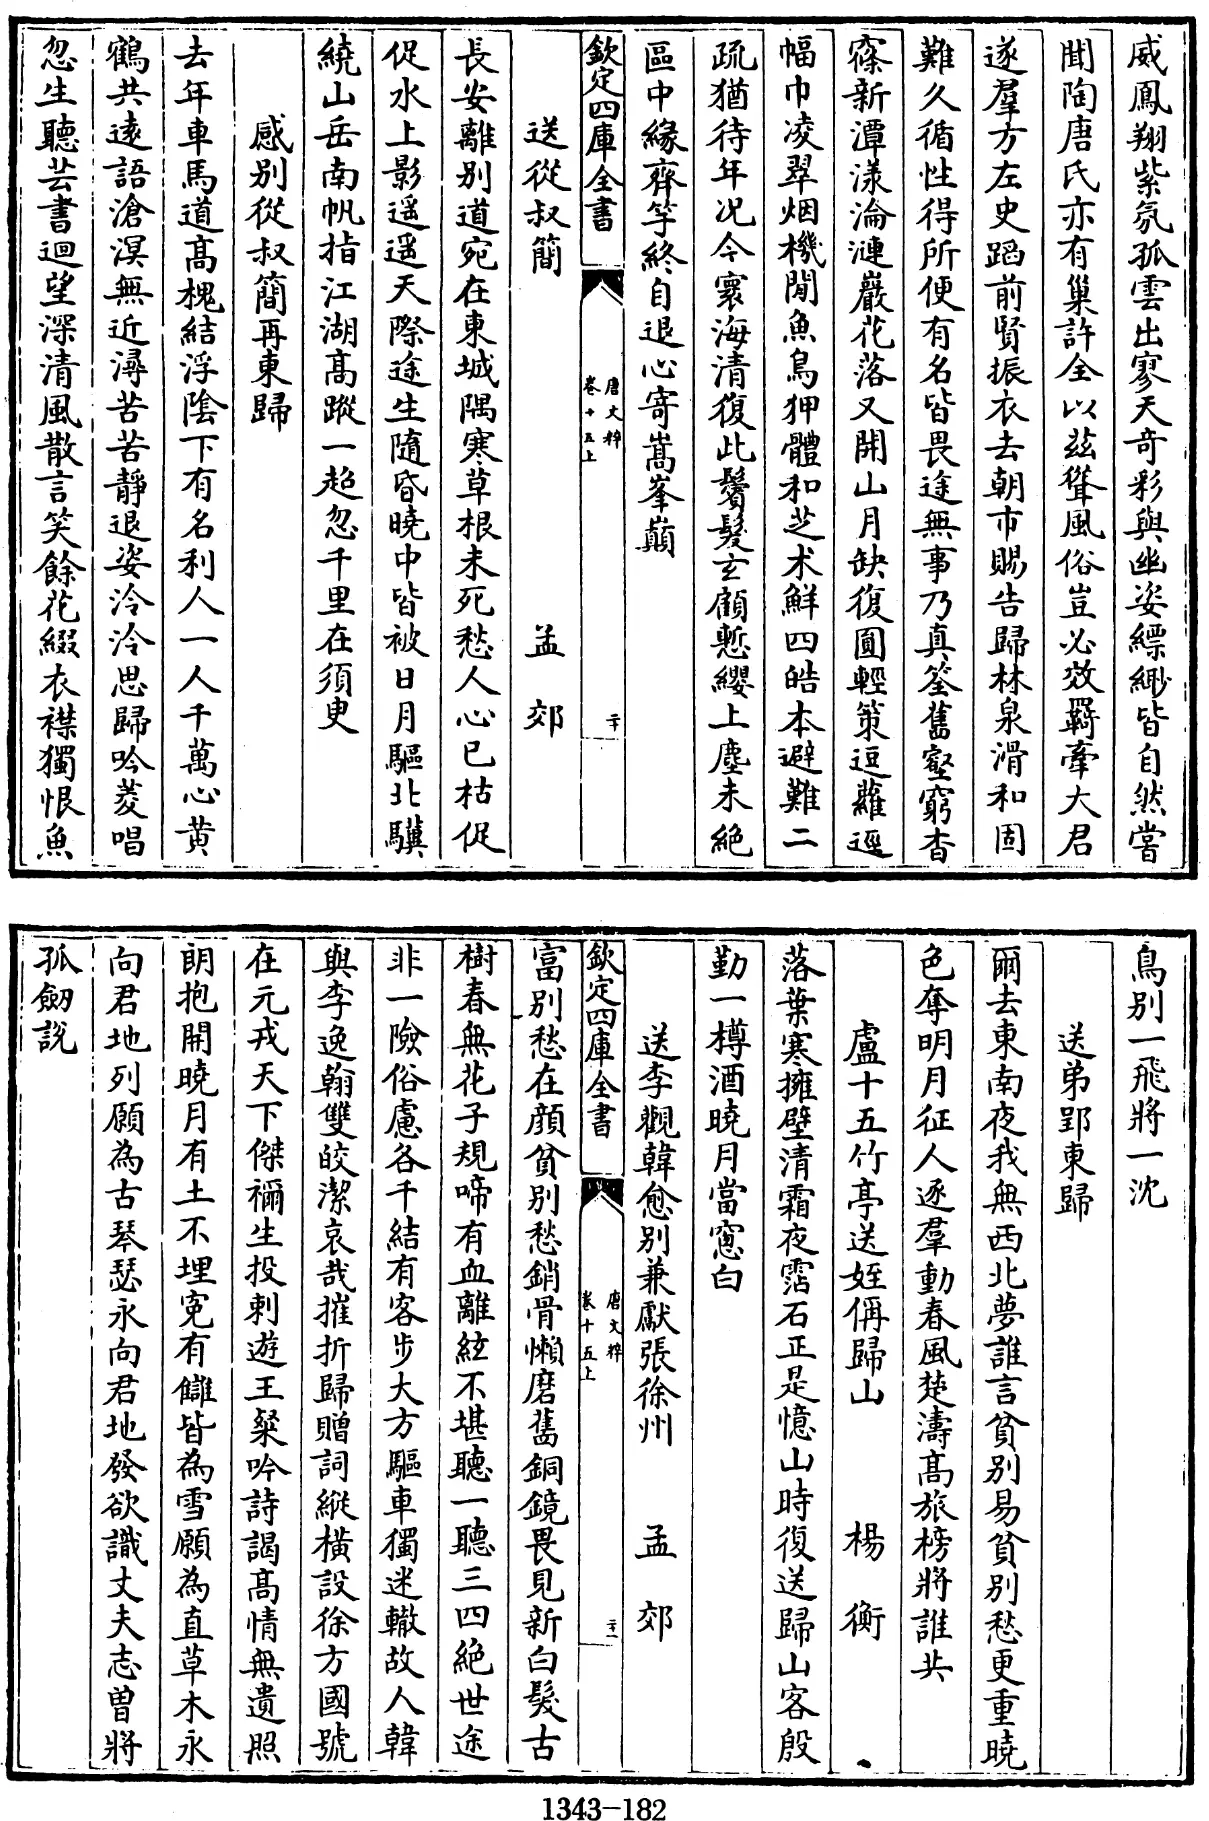 威鳳翔紫氛孤雲出寥天奇彩與幽姿縹緲皆自然嘗
聞陶唐氏亦有巢許全以茲聳風俗豈必效羇牽大君
遂羣方左史蹈前賢振衣去朝市賜告歸林泉滑和固
難久循性得所便有名皆畏途無事乃真筌舊壑窮杳
窱新潭漾淪漣巖花落又開山月缺復圓輕策逗蘿逕
幅巾凌翠烟機閒魚鳥狎體和芝术鮮四皓本避難二
疏猶待年况今寰海清復此鬢髮玄顧慙纓上塵未絶
區中緣齊竽終自退心寄嵩峯巔
欽定四庫全書
唐文粹
卷十五上
二十
送從叔簡 孟郊
長安離别道宛在東城隅寒草根未死愁人心已枯促
促水上影遥遥天際途生隨昏曉中皆被日月驅北驥
繞山岳南帆指江湖髙蹤一超忽千里在須臾
感别從叔簡再東歸
去年車馬道髙槐結浮隂下有名利人一人千萬心黄
鶴共逺語滄溟無近潯苦苦靜退姿泠泠思歸吟菱唱
忽生聽芸書迴望深清風散言笑餘花綴衣襟獨恨魚
鳥别一飛將一沈
送弟郢東歸
爾去東南夜我無西北夢誰言貧别易貧别愁更重曉
色奪明月征人逐羣動春風楚濤髙旅榜將誰共
盧十五竹亭送姪偁歸山 楊衡
落葉寒擁壁清霜夜霑石正是憶山時復送歸山客殷
勤一樽酒曉月當窻白
送李觀韓愈别兼獻張徐州 孟郊
欽定四庫全書
唐文粹
卷十五上
二十一
富别愁在顔貧别愁銷骨懶磨舊銅鏡畏見新白髮古
樹春無花子規啼有血離絃不堪聽一聽三四絶世途
非一險俗慮各千結有客步大方驅車獨迷轍故人韓
與李逸翰雙皎潔哀哉摧折歸贈詞縱横設徐方國號
在元戎天下傑禰生投刺遊王粲吟詩謁髙情無遺照
朗抱開曉月有土不埋寃有讎皆為雪願為直草木永
向君地列願為古琴瑟永向君地發欲識丈夫志曽將
孤劒説
1343-182